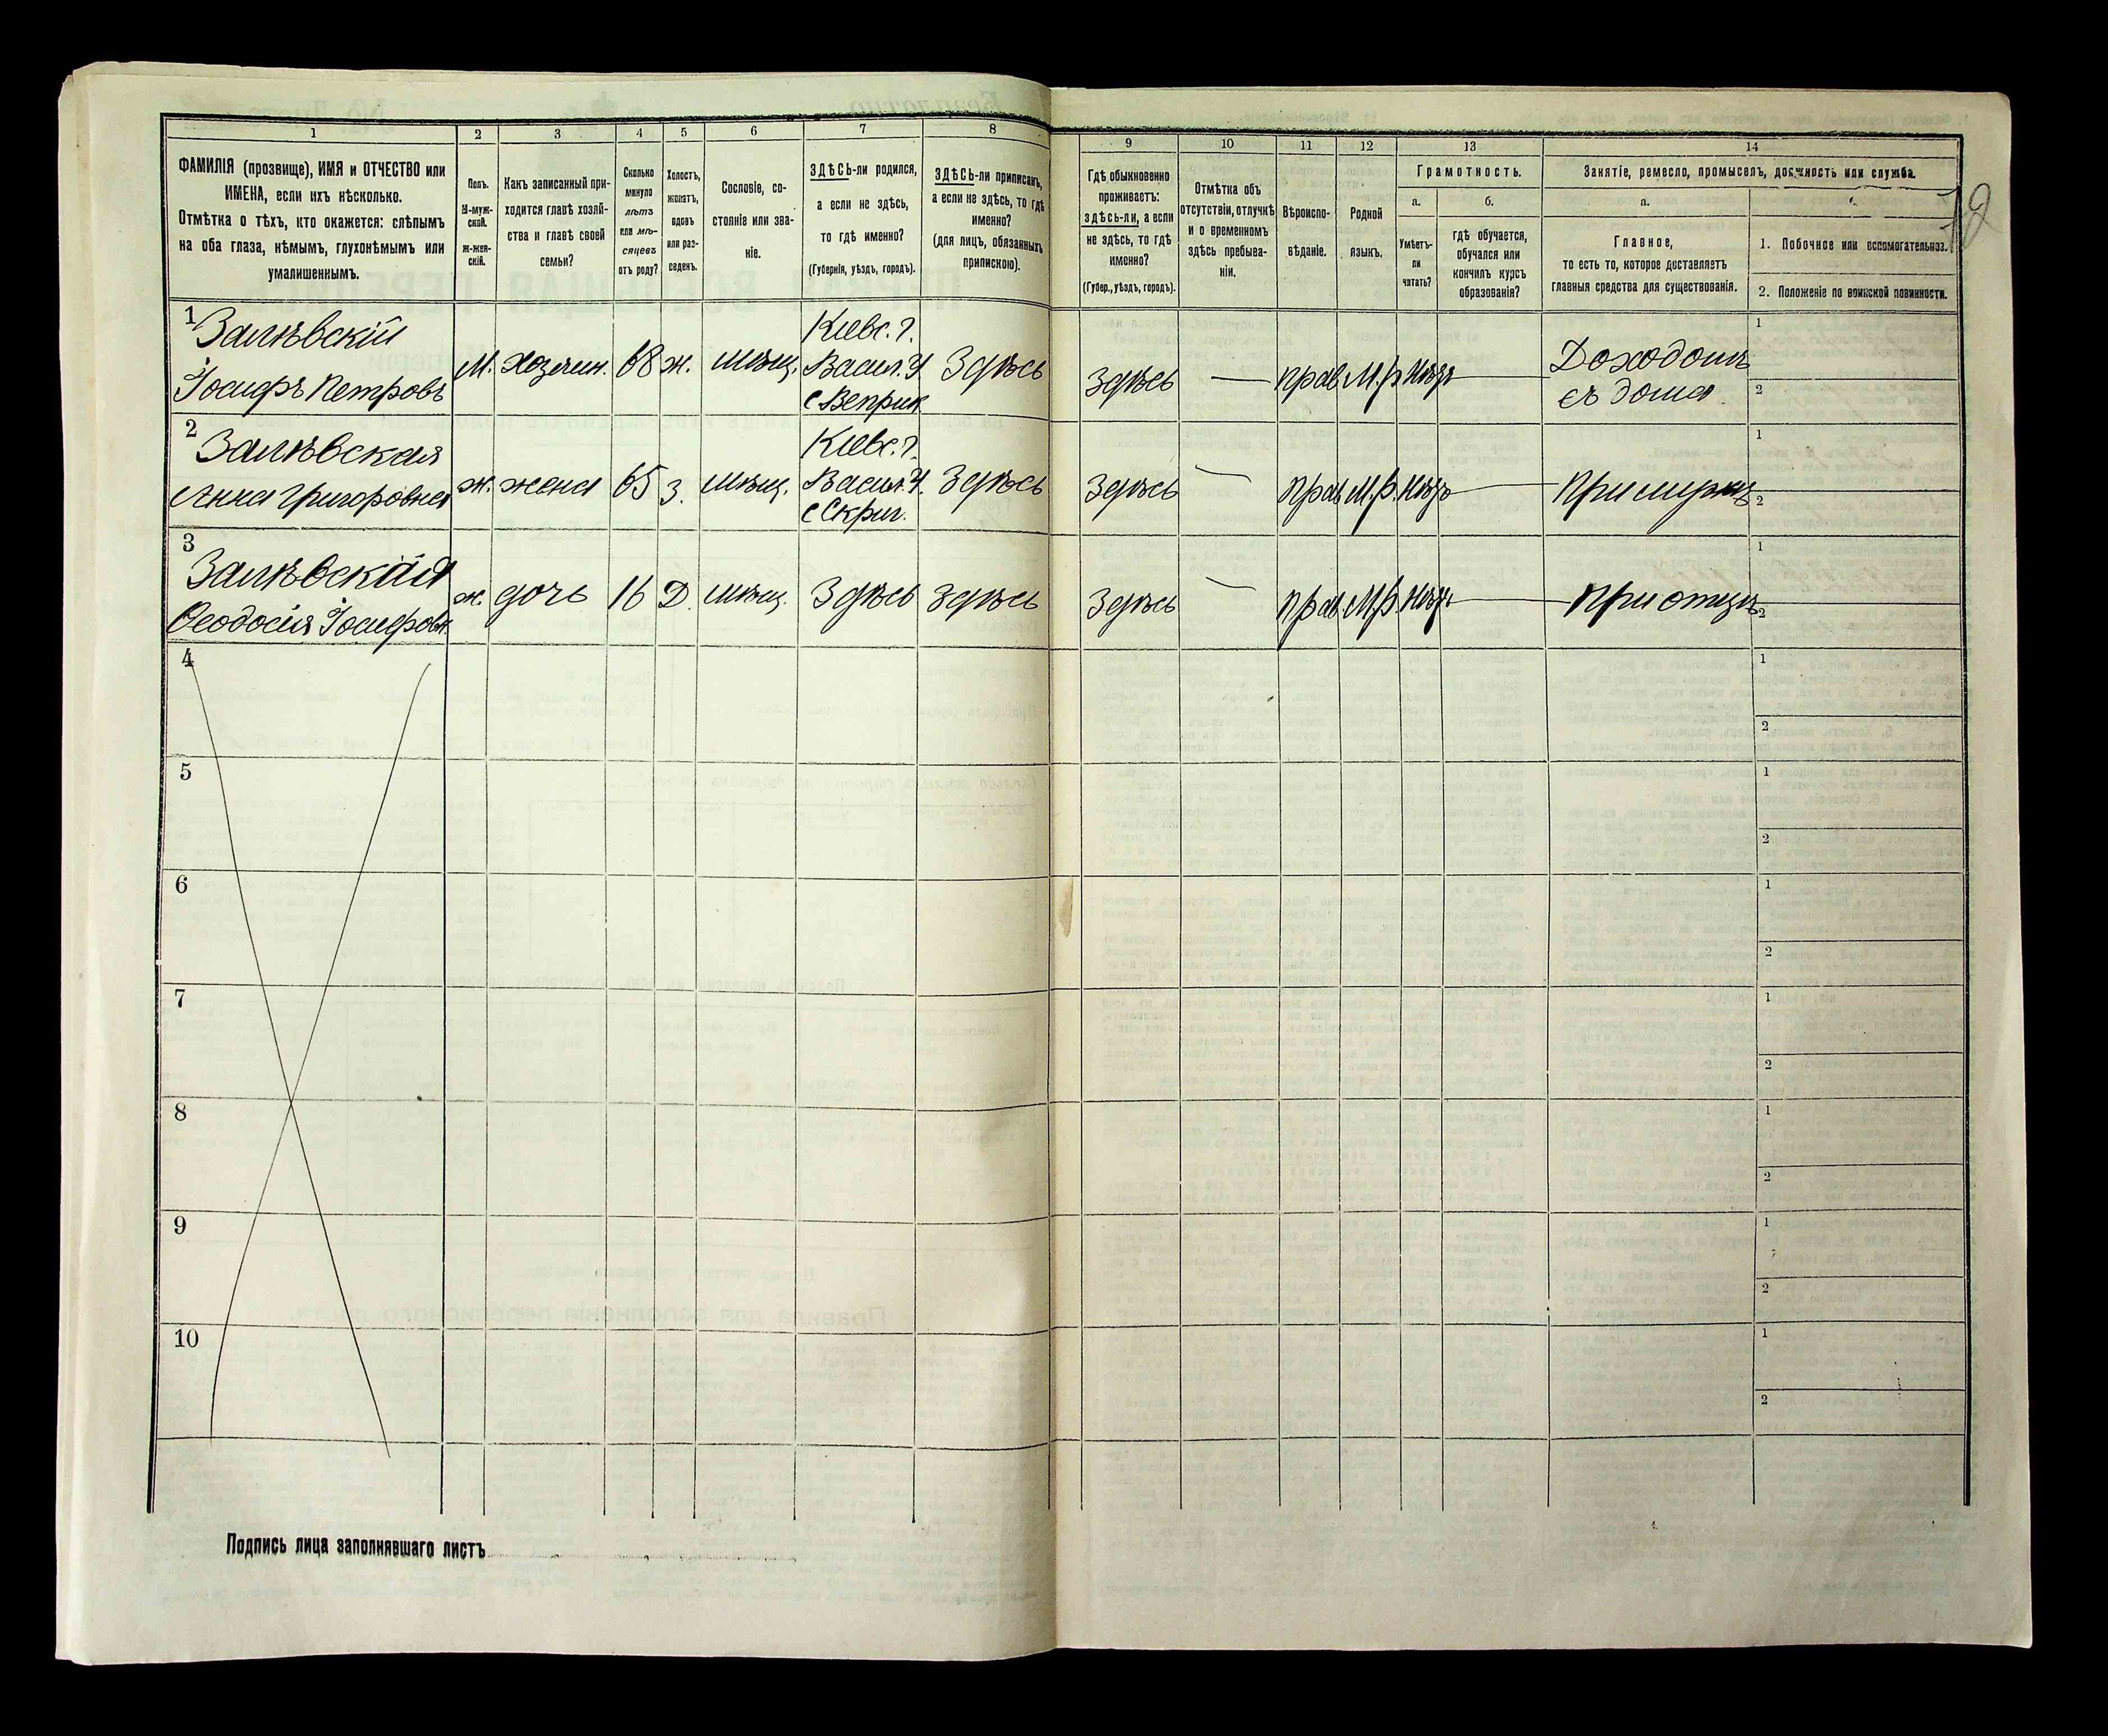 1 2 3 4 5 6 7 8 9 10 11 12 13 14
ФАМИЛІЯ (прозвище), ИМЯ и ОТЧЕСТВО или
ИМЕНА, если ихъ нѣсколько.
Отмѣтка о тѣхъ, кто окажется: слѣпымъ
на оба глаза, нѣмымъ, глухонѣмымъ или
умалишеннымъ.
Полъ.
М-муж-
ской.
Ж-жен-
скій.
Какъ записанный при-
ходится главѣ хозяй-
ства и главѣ своей
семьи?
Сколько
минуло
лѣтъ
или мѣ-
сяцевъ
отъ роду?
Холостъ,
женатъ,
вдовъ
или раз-
веденъ.
Сословіе, со-
стояніе или зва-
ніе.
ЗДѢСЬ-ли родился,
а если не здѣсь,
то гдѣ именно?
(Губернія, уѣздъ, городъ).
ЗДѢСЬ-ли приписанъ,
а если не здѣсь, то гдѣ
именно?
(для лицъ, обязанныхъ
припискою).
Гдѣ обыкновенно
проживаетъ:
здѣсь-ли, а если
не здѣсь, то гдѣ
именно?
(Губер., уѣздъ, городъ).
Отмѣтка объ
отсутствіи, отлучкѣ
и о временномъ
здѣсь пребыва-
ніи.
Вѣроиспо-
вѣданіе.
Родной
языкъ.
Грамотность.
а.
Умѣетъ-
ли
читать?
б.
гдѣ обучается,
обучался или
кончилъ курсъ
образованія?
Занятіе, ремесло, промыселъ, должность или служба.
а.
Главное,
то есть то, которое доставляетъ
главныя средства для существованія.
1. Побочное или вспомогательное.
2. Положеніе по воинской повинности.
12
1
Залѣвскій
Іосифъ Петровъ
М.
хозяин.
68
ж.
мѣщ.
Кіевс. г.
Васил. У
с Веприк
Здѣсь
Здѣсь
—
прав
М.р
нѣтъ
Доходомъ
съ дома.
1
2
2
Залѣвская
Анна Григоровна
ж.
жена
65
З.
мѣщ.
Кіевс. г.
Васил. У.
с Скриг.
Здѣсь
Здѣсь
—
прав
М.р.
нѣтъ
При мужѣ
1
2
3
Залѣвская
Ѳеодосія Іосифовн.
ж.
дочь
16
Д.
мѣщ.
Здѣсь
Здѣсь
Здѣсь
—
прав
М.р.
нѣтъ
При отцѣ
1
2
4
1
2
5
1
2
6
1
2
7
1
2
8
1
2
9
1
2
10
1
2
Подпись лица заполнявшаго листъ